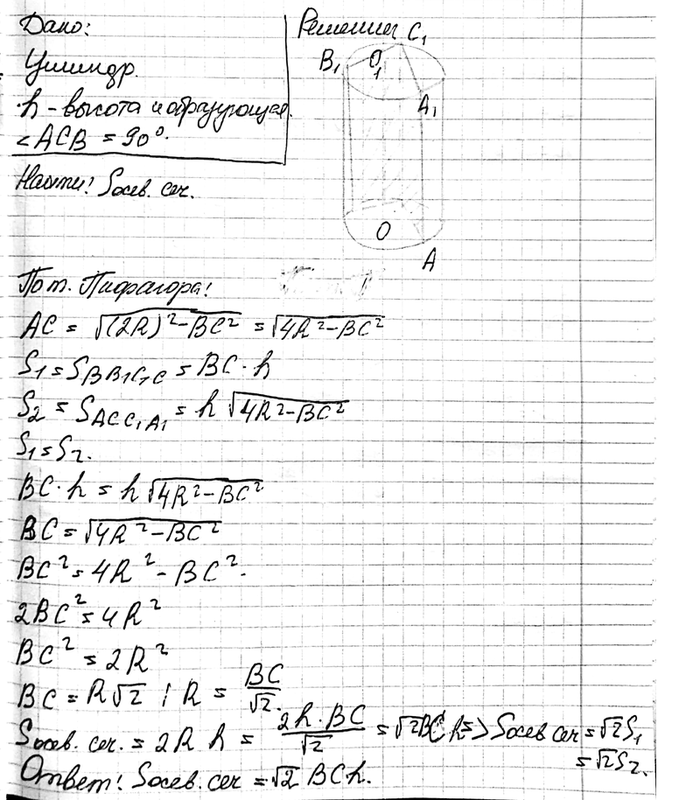 Дано:
Цилиндр.
h - высота и образующая.
<ACB = 90°.
Найти: Sосев. сеч.
Решение
C₁
B₁
O₁
A₁
O
A
По т. Пифагора:
AC = √((2R)²-BC²) = √(4R²-BC²)
S₁ = S BB₁C₁C = BC · h
S₂ = S ACC₁A₁ = h √(4R²-BC²)
S₁ = S₂.
BC · h = h √(4R²-BC²)
BC = √(4R²-BC²)
BC² = 4R² - BC².
2BC² = 4R²
BC² = 2R²
BC = R√2 ; R = BC/√2.
Sосев. сеч. = 2R h = 2h·BC/√2 = √2BC h => Sосев сеч = √2S₁
= √2S₂.
Ответ: Sосев. сеч = √2 BCh.